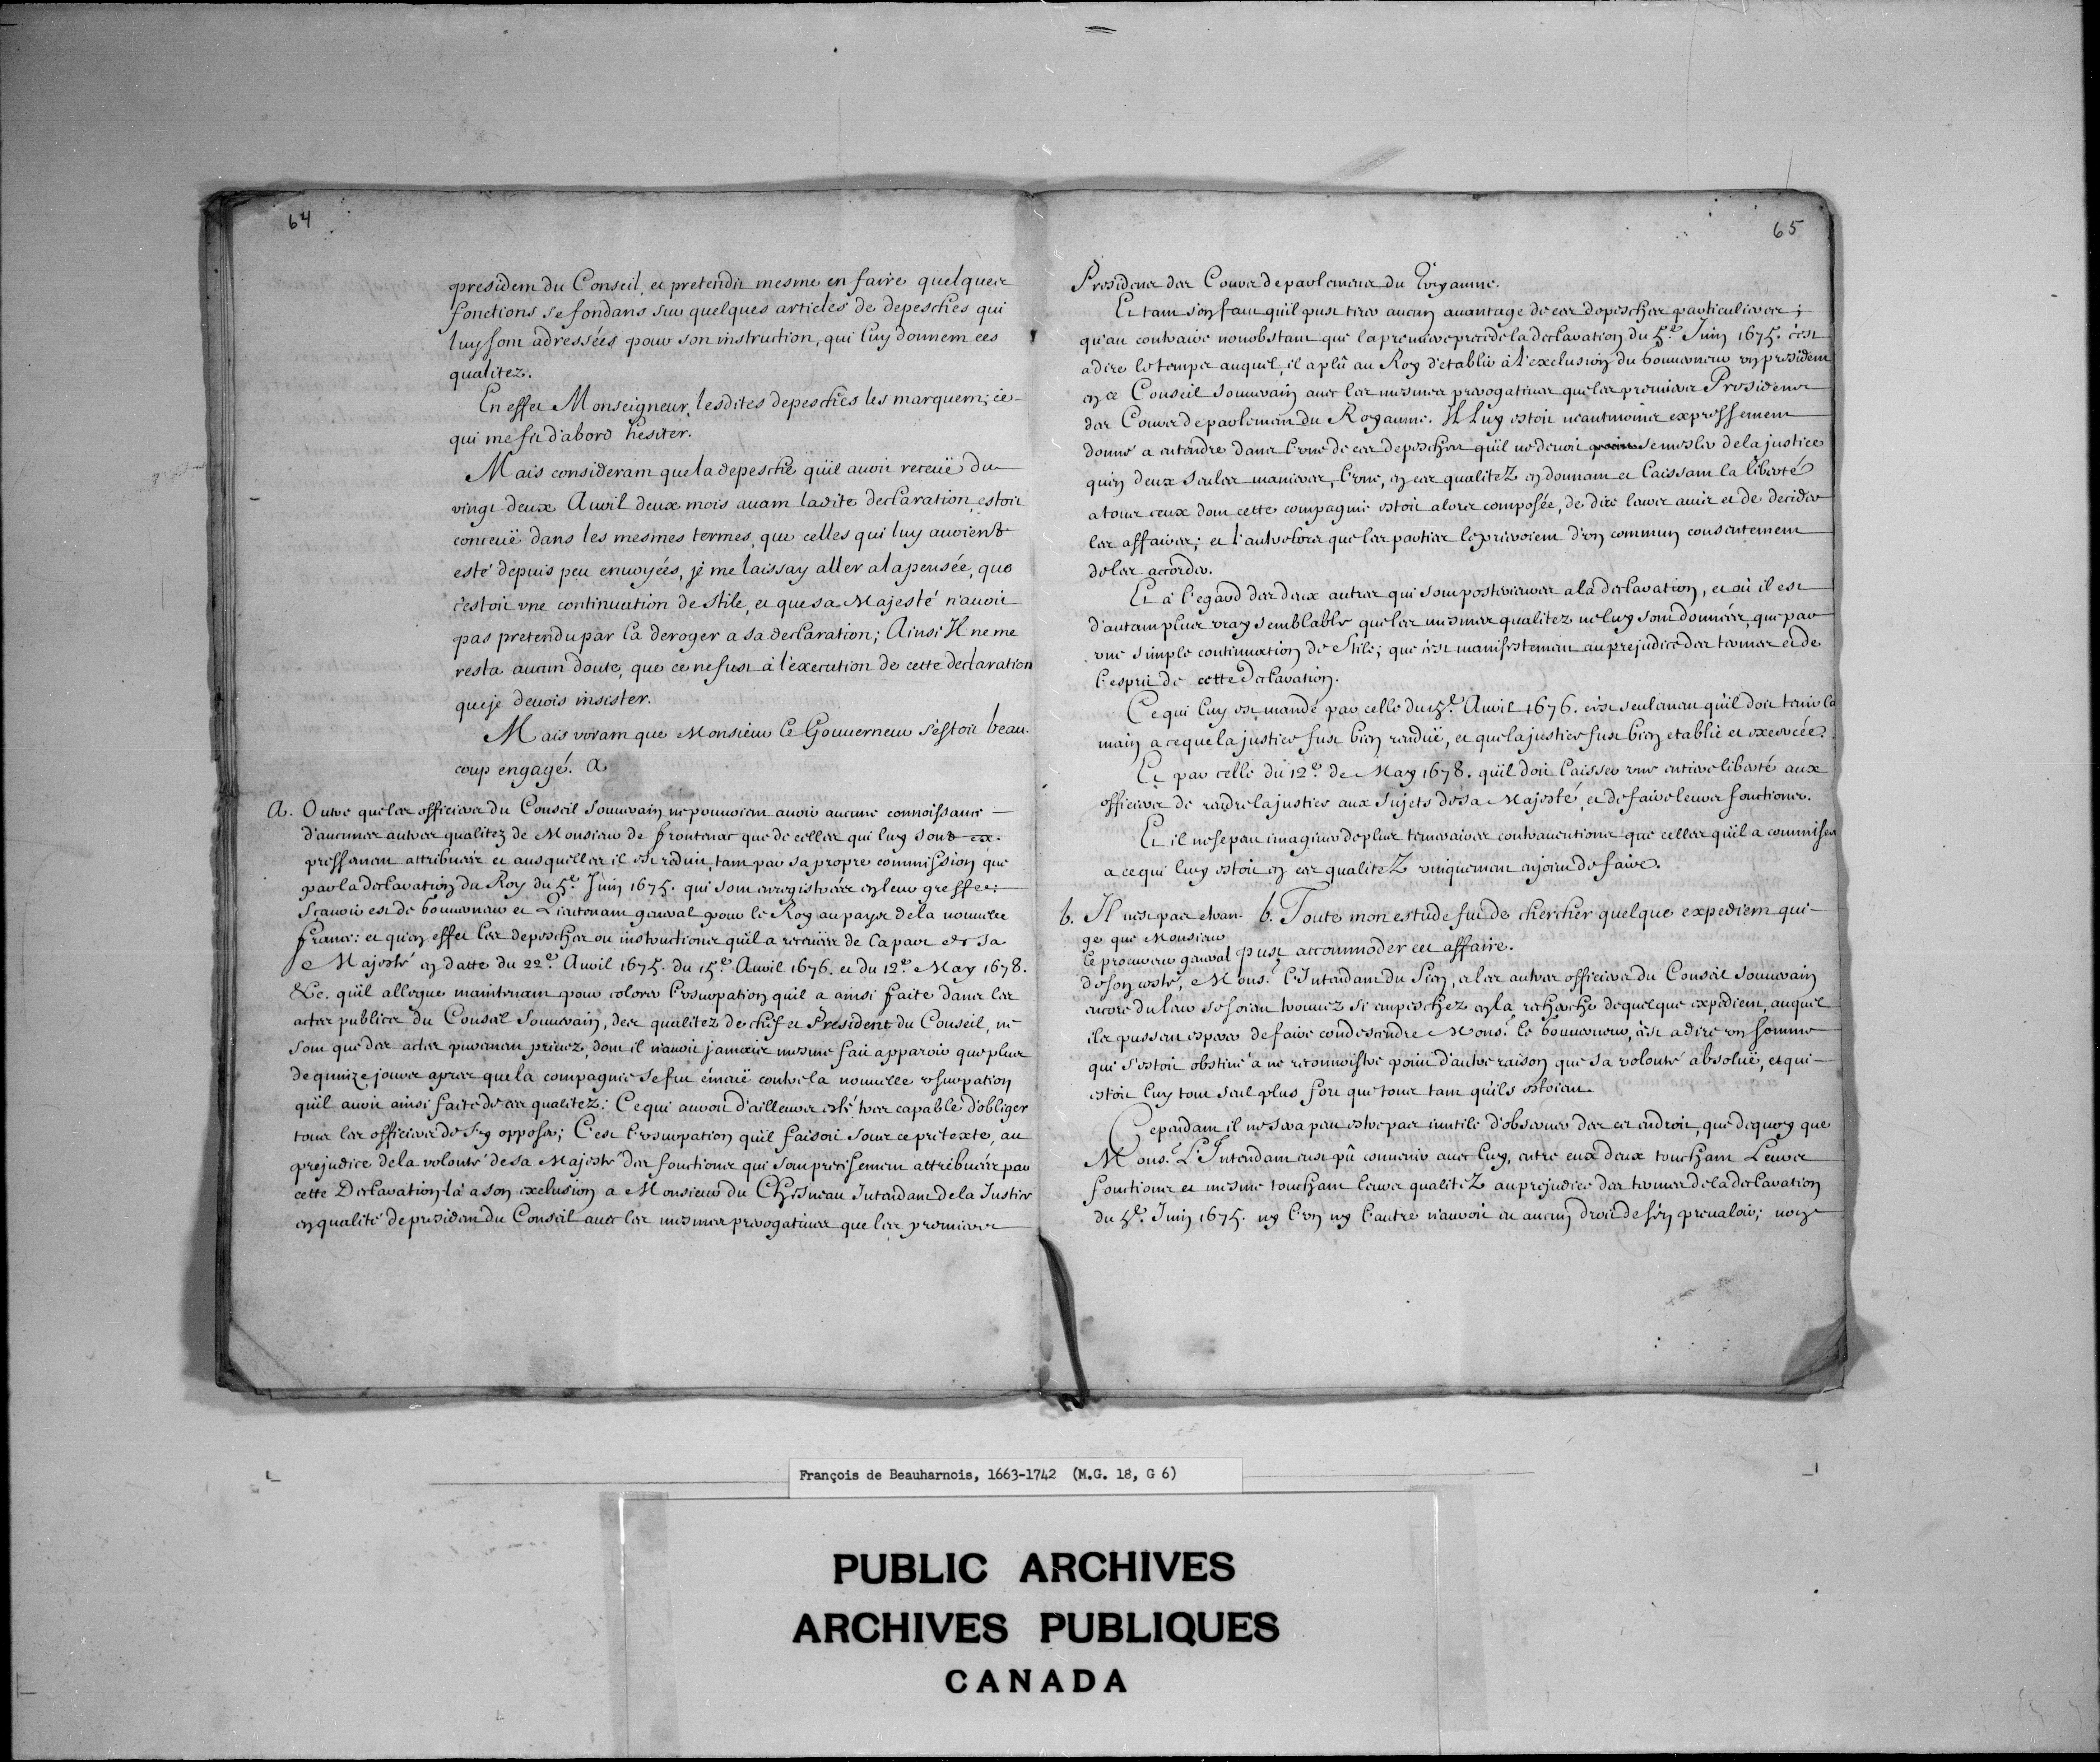 64
president du Conseil, et pretendit mesme en faire quelques
fonctions se fondans sur quelques articles de depesches qui
luy sont adressées pour son instruction, qui luy donnent ces
qualitez.
En effet Monseigneur, lesdites depesches les marquent; ce
qui me fit d'abord hesiter.
Mais considerant que la depesche qu'il avoit receuë du
vingt deux Avril deux mois avant ladite declaration estoit
conceuë dans les mesmes termes, que celles qui luy avoient
esté depuis peu envoyées, je me laissay aller a la pensée, que
c'estoit vne continuation de stile, et que sa Majesté n'avoit
pas pretendu par là deroger a sa declaration; Ainsi Il ne me
resta aucun doute, que ce ne fust à l'execution de cette declaration
que je devois insister.
Mais voyant que Monsieur le Gouuerneur s'estoit beau-
coup engagé. a
a. Outre que les officiers du Conseil Souuerain ne pouuoient auoir aucune connoissance
d'aucunes autres qualitez de Monsieur de frontenac que de celles qui luy sont ex-
pressement attribuées et ausquelles il est reduit, tant par sa propre commission que
par la declaration du Roy du 5.e Juin 1675. qui sont enregistrées en leur greffe:
Scauoir est de Gouuerneur et Lieutenant general pour le Roy au pays de la nouuelle
france: et qu'en effet les depesches ou instructions qu'il a receuës de la part de sa
Majesté en datte du 22.e Auril 1675. du 15.e Auril 1676. et du 12.e May 1678.
&c. qu'il allegue maintenant pour colorer l'vsurpation qu'il a ainsi faite dans les
actes publics du Conseil Souuerain, des qualitez de chef et President du Conseil, ne
sont que des actes purement priuez, dont il n'auoit jamais mesme fait apparoir que plus
de quinze jours apres que la compagnie se fut émeuë contre la nouuelle vsurpation
qu'il auoit ainsi faite de ces qualitez: Ce qui auroit d'ailleurs esté tres capable d'obliger
tous les officiers de s'y opposer; C'est l'vsurpation qu'il faisoit sous ce pretexte, au
prejudice de la volonté de sa Majesté des fonctions qui sont precisement attribuées par
cette Declaration-là a son exclusion a Monsieur du Chesneau Intendant de la Justice
en qualité de president du Conseil auec les mesmes prerogatiues que les premiers
65
Presidens des Cours de parlemens du Royaume.
Et tant s'en faut qu'il pust tirer aucun auantage de ces depesches particulieres;
qu'au contraire nonobstant que la premiere precede la declaration du 5.e Juin 1675. c'est
a dire le temps auquel, il a plû au Roy d'etablir à l'exclusion du Gouuerneur vn president
en ce Conseil Souuerain auec les mesmes prerogatiues que les premiers Presidens
des Cours de parlement du Royaume. Il luy estoit neantmoins expressement
donné a entendre dans l'vne de ces depesches qu'il ne deuoit se mesler de la justice
qu'en deux seules manieres, l'vne, en ces qualitez en donnant et laissant la liberté
a tous ceux dont cette compagnie estoit alors composée, de dire leurs auis et de decider
les affaires; et l'autre lors que les parties le prieroient d'vn commun consentement
de les accorder.
Et à l'egard des deux autres qui sont posterieures a la declaration, et où il est
d'autant plus vray semblable que les mesmes qualitez ne luy sont données, que par
vne simple continuation de Stile; que c'est manifestement au prejudice des termes et de
l'esprit de cette Declaration.
Ce qui luy est mandé par celle du 15.e Auril 1676. c'est seulement qu'il doit tenir la
main a ce que la justice fust bien renduë, et que la justice fust bien etablie et exercée.
Et par celle du 12.e de May 1678. qu'il doit laisser vne entiere liberté aux
officiers de rendre la justice aux Sujets de sa Majesté, et de faire leurs fonctions.
Et il ne se peut imaginer de plus temeraires contrauentions que celles qu'il a commises
a ce qui luy estoit en ces qualitez vniquement enjoint de faire.
b. Il n'est pas etran-
ge que Monsieur
le procureur general
b. Toute mon estude fut de chercher quelque expedient qui
pust accommoder cet affaire.
de son costé, Mons.r l'Intendant du Sien, et les autres officiers du Conseil Souuerain
encore du leur se soient trouuez si empeschez en la recherche de quelque expedient, auquel
ils pussent esperer de faire condescendre Mons.r le Gouuerneur, c'est a dire vn homme
qui s'estoit obstiné à ne reconnoistre point d'autre raison que sa volonté absoluë, et qui
estoit luy tout seul plus fort que tous tant qu'ils estoient.
Cependant il ne sera peut estre pas inutile d'obseruer des cet endroit, que dequoy que
Mons.r L'Intendant eust pû conuenir auec luy, entre eux deux touchant Leurs
fonctions et mesme touchant leurs qualitez au prejudice des termes de la declaration
du 5.e Juin 1675. ny l'vn ny l'autre n'auroit eu aucun droit de s'en preualoir; non
François de Beauharnois, 1663-1742 (M.G. 18, G 6)
PUBLIC ARCHIVES
ARCHIVES PUBLIQUES
CANADA